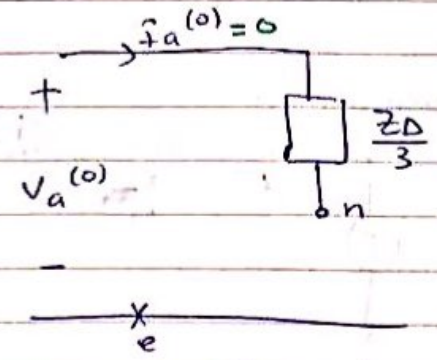 Ia^(0) = 0
+
ZΔ/3
Va^(0)
n
-
e